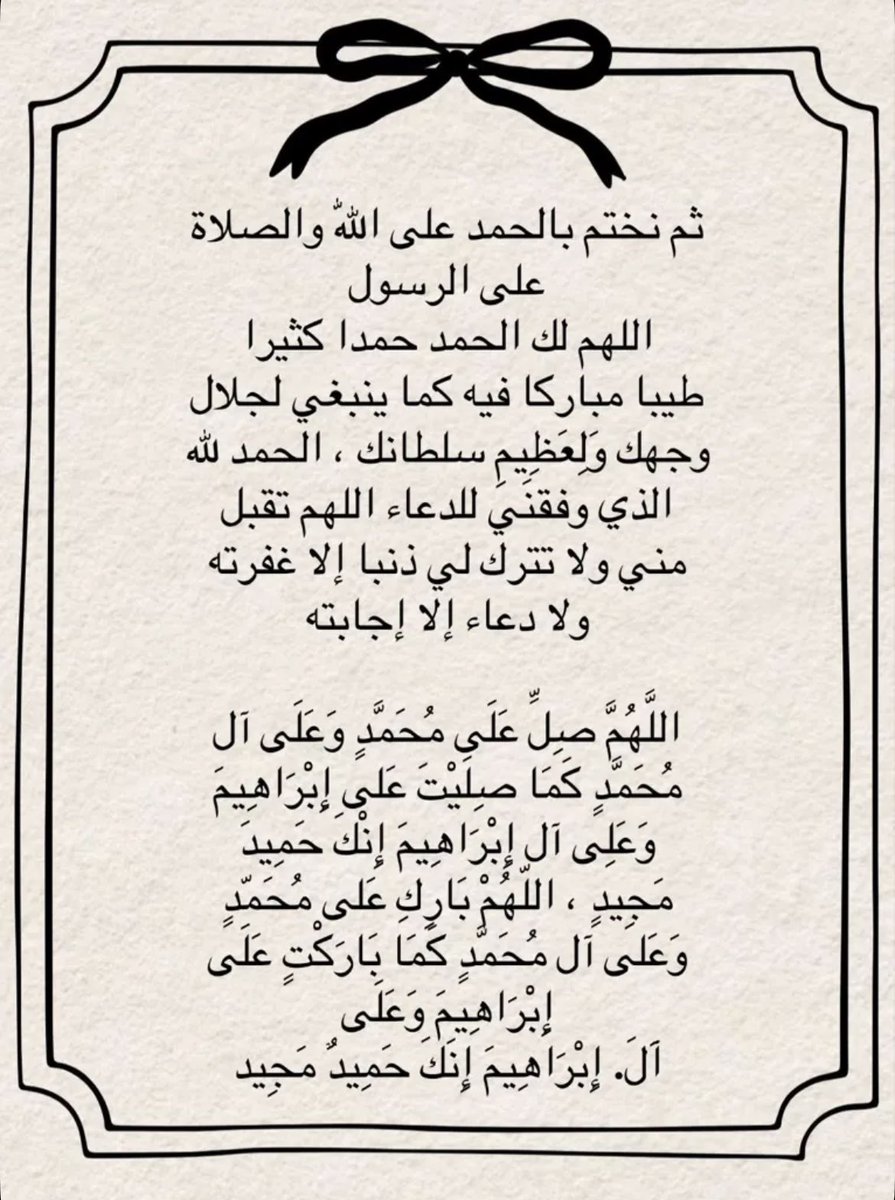 ثم نختم بالحمد على الله والصلاة
على الرسول
اللهم لك الحمد حمدا كثيرا
طيبا مباركا فيه كما ينبغي لجلال
وجهك وَلِعَظِيمِ سلطانك ، الحمد لله
الذي وفقنَيِ للدعاء اللهم تقبل
مني ولا تترك لي ذنبا إلا غفرته
ولا دعاء إلا إجابته
اللَّهُمَّ صِلِّ عَلَى مُحَمَّدٍ وَعَلَى آل
مُحَمَّدٍ كَمَا صِلَيْتَ عَلَى إِبْرَاهِيمَ
وَعَلِى آل إِبْرَاهِيمَ إِنْكَ حَمِيدَ
مَجِيدٍ ، اللّهُمْ بَارِكِ عَلى مُحَمّدٍ
وَعَلَى آل مُحَمَّدٍ كَمَا بَارَكْتٍ عَلَى
إِبْرَاهِيمَ وَعَلَى
آلَ. إِبْرَاهِيمَ إِنَكَ حَمِيدٌ مَجِيد